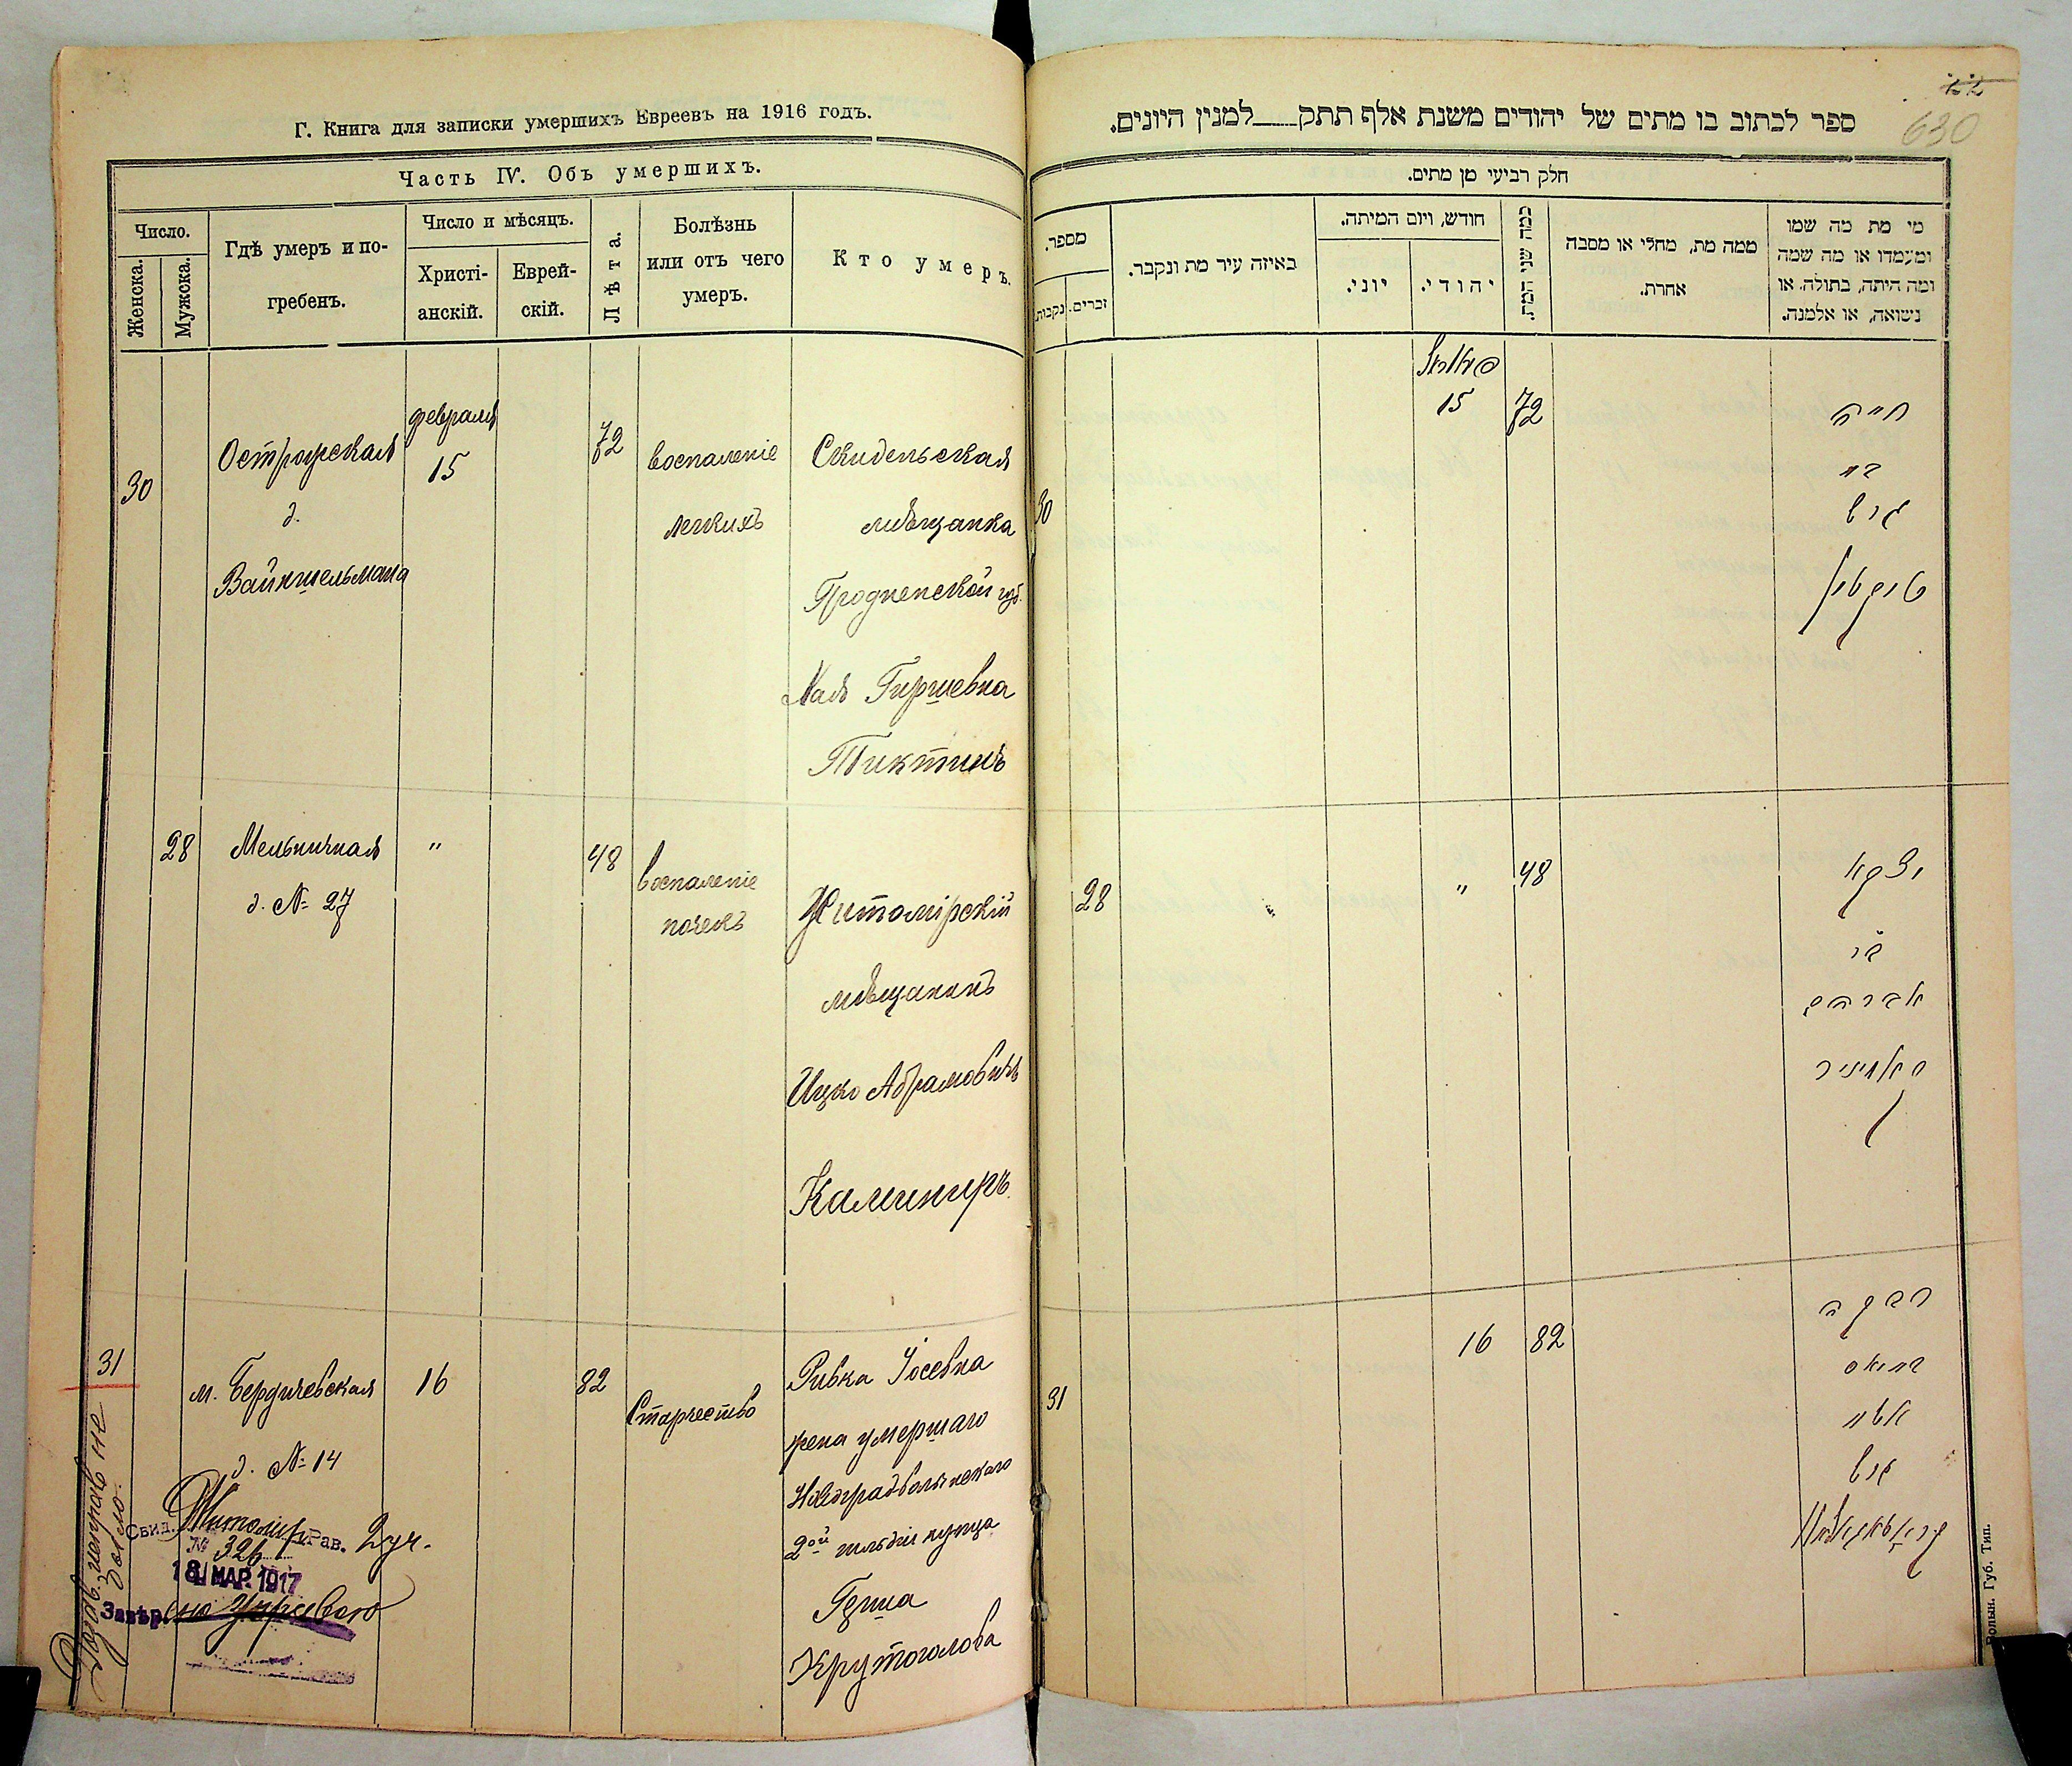 Г. Книга для записки умершихъ Евреевъ на 1916 годъ.
Часть IV. Объ умершихъ.
Число.
Женска.
Мужска.
Гдѣ умеръ и по-
гребенъ.
Число и мѣсяцъ.
Христі-
анскій.
Еврей-
скій.
Лѣта.
Болѣзнь
или отъ чего
умеръ.
Кто умеръ.
30
Острожская
д.
Вайншельмана
февраля
15
72
воспаленіе
легкихъ
Скидельская
мѣщанка
Гродненской губ.
Хая Гиршевна
Тиктинъ
28
Мельничная
д. № 27
"
48
воспаленіе
почекъ
Житомірскій
мѣщанинъ
Ицко Абрамовичъ
Калиниръ
31
м. Бердичевская
д. № 14
16
82
Старчество
Ривка Іосевна
жена умершаго
Новоградволынскаго
2ой гильдіи купца
Герша
Крутоголова
Свид. Житомір. Рав. 2 уч.
№ 326
18 МАР. 1917
Завѣр.
630
ספר לכתוב בו מתים של יהודים משנת אלף תתק___למנין היונים.
חלק רביעי מן מתים.
מספר.
נקבות
זכרים.
באיזה עיר מת ונקבר.
חודש, ויום המיתה.
יוני.
יהודי.
כמה שני המת.
ממה מת, מחלי או מסבה
אחרת.
מי מת מה שמו
ומעמדו או מה שמה
ומה היתה, בתולה. או
נשואה, או אלמנה.
30
15
72
חיה
בת
הירש
טיקטין
28
"
48
יצקא
בן
אברהם
קאליניר
31
16
82
רבקה
אשת
הירש
קרוטאגאלאוו
Волын. Губ. Тип.